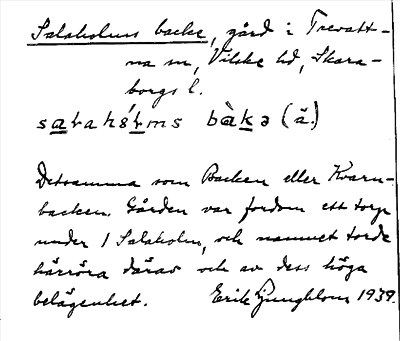 Salaholms backe, gård i Trevatt-
na sn, Vilske hd, Skara-
borgs l.
saɫahóɫms bàkə (ä.)
Detsamma som Backen eller Kvarn-
backen. Gården var fordom ett torp
under 1 Salaholm, och namnet torde
härröra därav och av dess höga
belägenhet. Erik Ljungblom 1939.